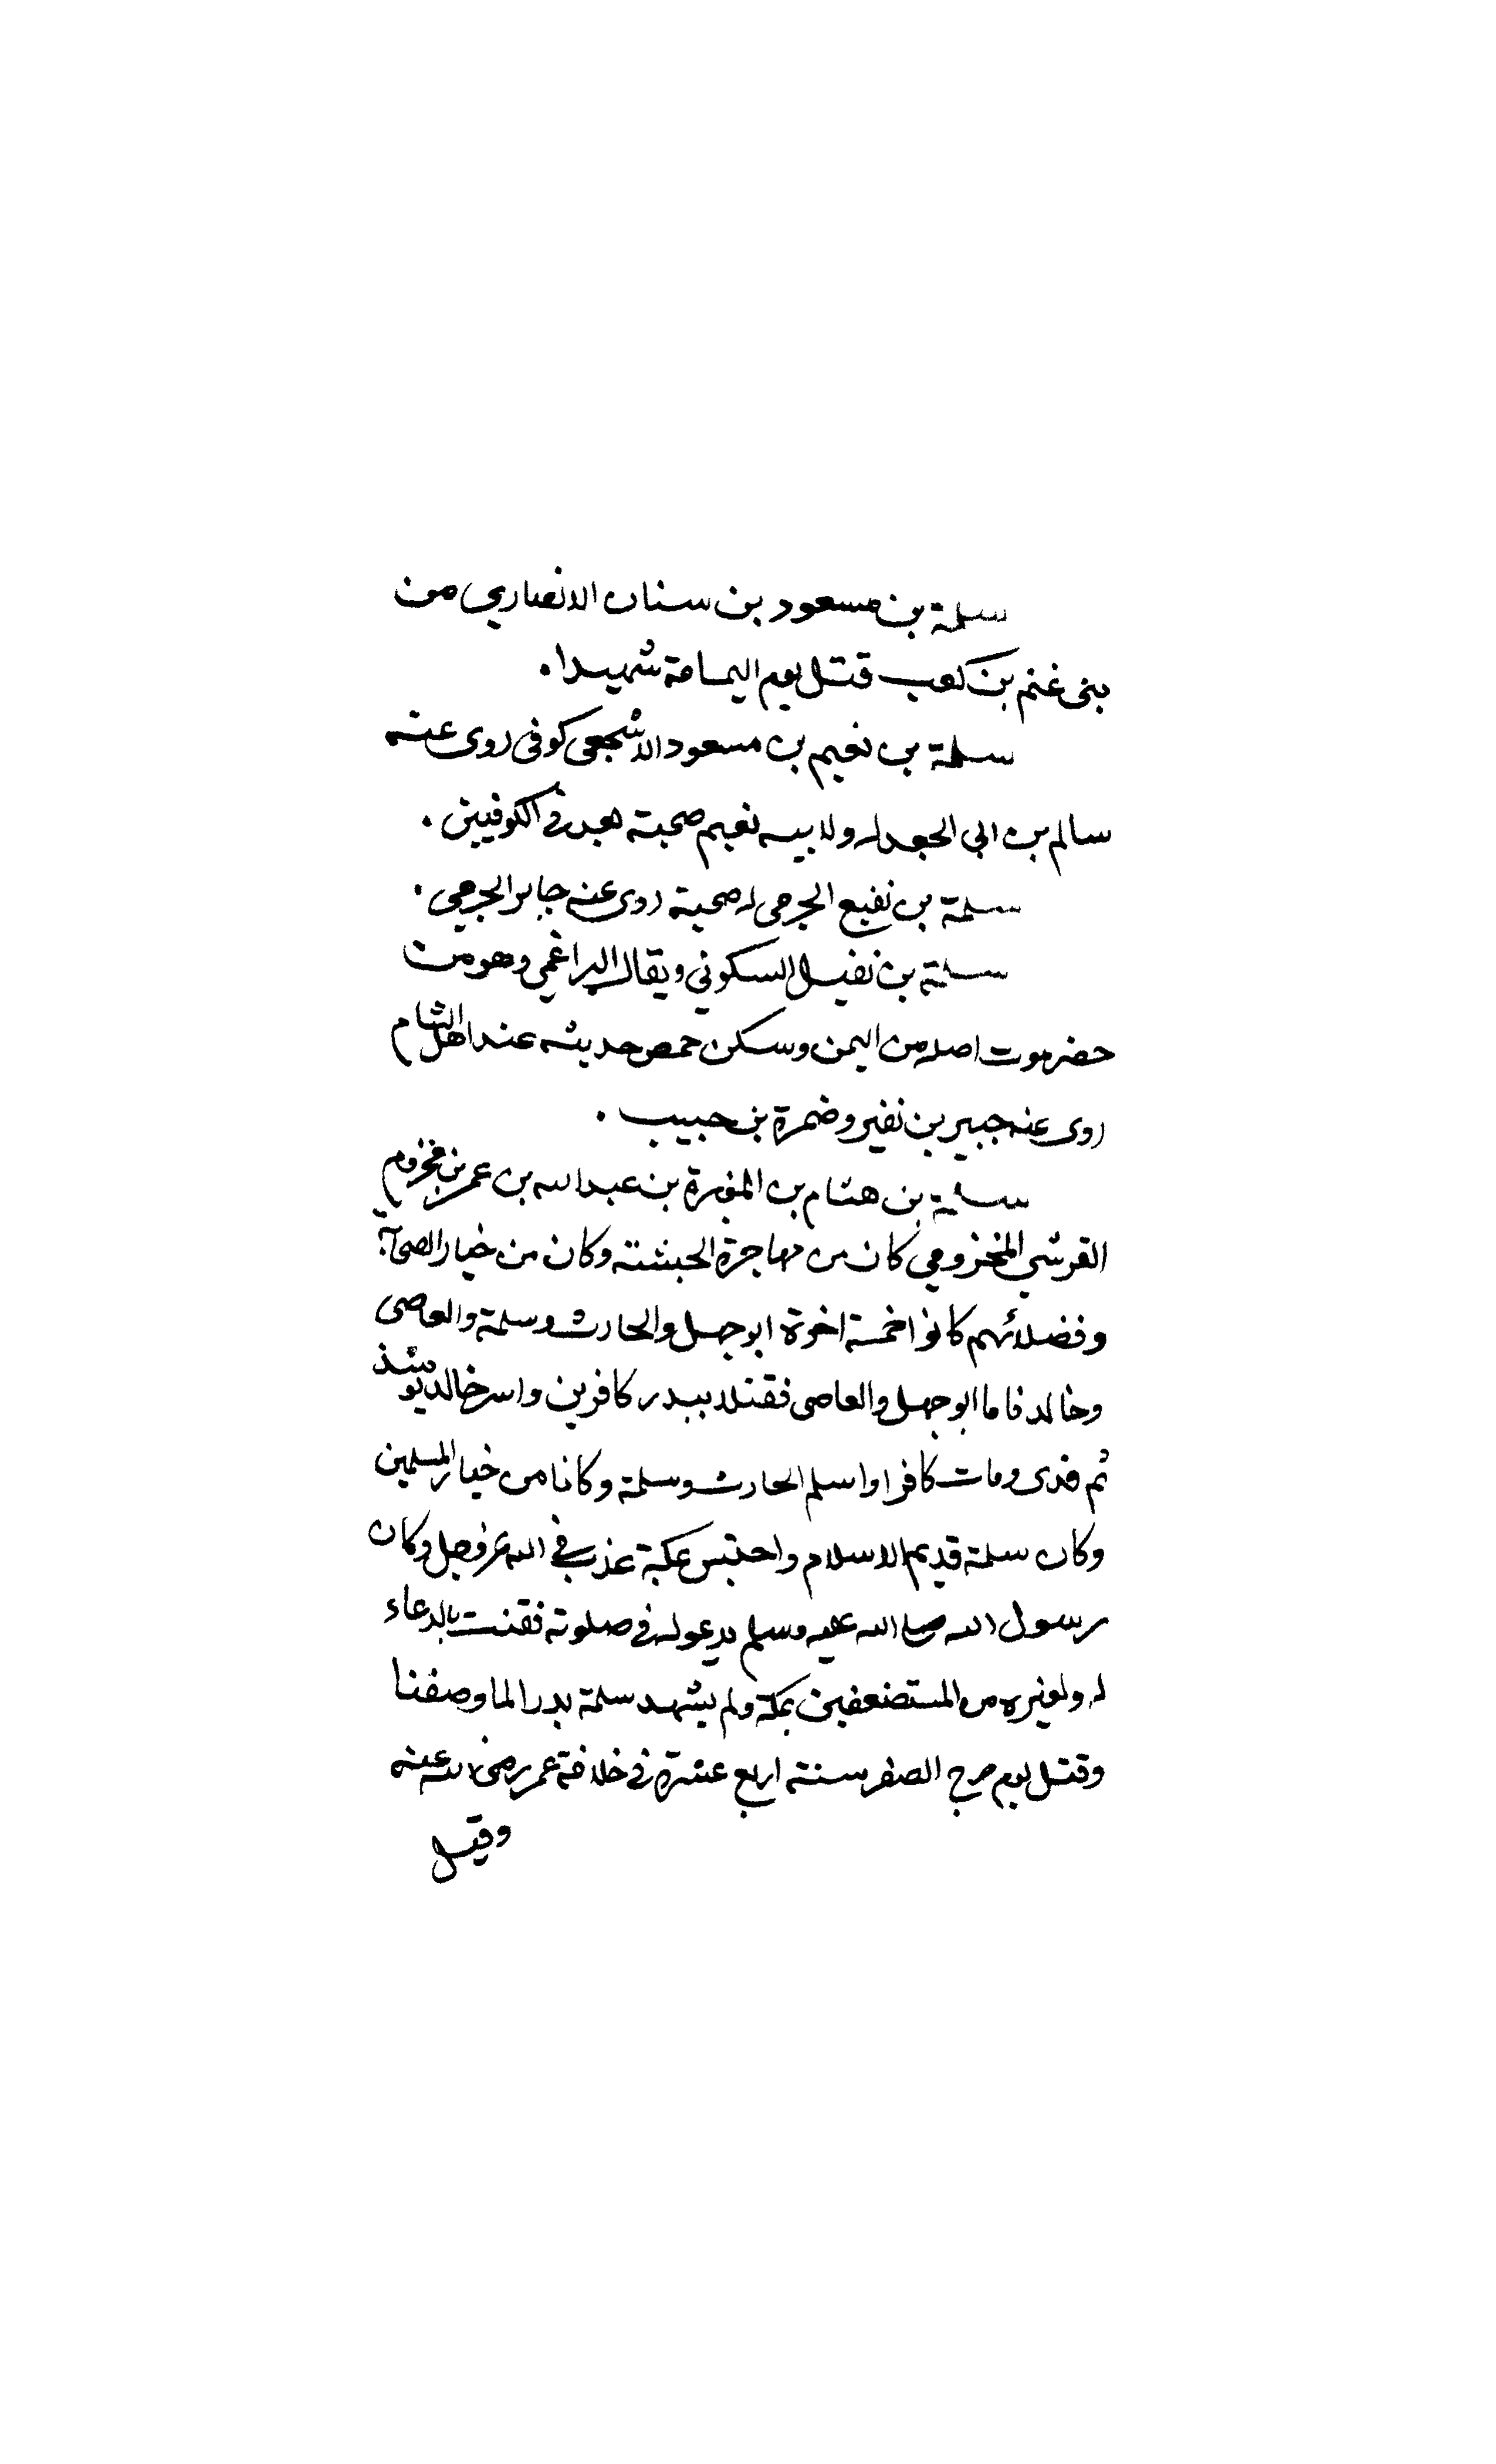 سلمة بن مسعود بن سنان الانصاري من
بنى غنم بن كعب قتل يوم اليمامة شهيدا.
سلمة بن نعيم بن مسعود الاشجعى كوفى روى عنه
سالم بن ابي الجعد له ولابيه نعيم صحبة يعد فى الكوفيين.
سلمة بن نفيع الجرمى له صحبة روى عنه جابر الجرمي.
سلمة بن نفيل السكوني ويقال التراغمي وهو من
حضرموت اصله من اليمن وسكن حمص حديثه عند اهل الشام
روى عنه جبير بن نفير وضمرة بن حبيب.
سلمة بن هشام بن المغيرة بن عبدالله بن عمر بن مخزوم
القرشي المخزومي كان من مهاجرة الحبشة وكان من خيار الصحابة
وفضلائهم كانوا خمسة اخوة ابوجهل والحارث وسلمة والعاصى
وخالد فاما ابوجهل والعاصى فقتلا ببدر كافرين واسر خالد يومئذ
ثم فدى ومات كافرا واسلم الحارث وسلمة وكانا من خيار المسلمين
وكان سلمة قديم الاسلام واحتبس بمكة عذب في الله عزوجل وكان
رسول الله صلى الله عليه وسلم يدعو له فى صلوته فقنت بالدعاء
له ولغيره من المستضعفين بمكة ولم يشهد سلمة بدرا لما وصفنا
وقتل يوم مرج الصفر سنة اربع عشرة في خلافة عمر رضى الله عنه
وقيل